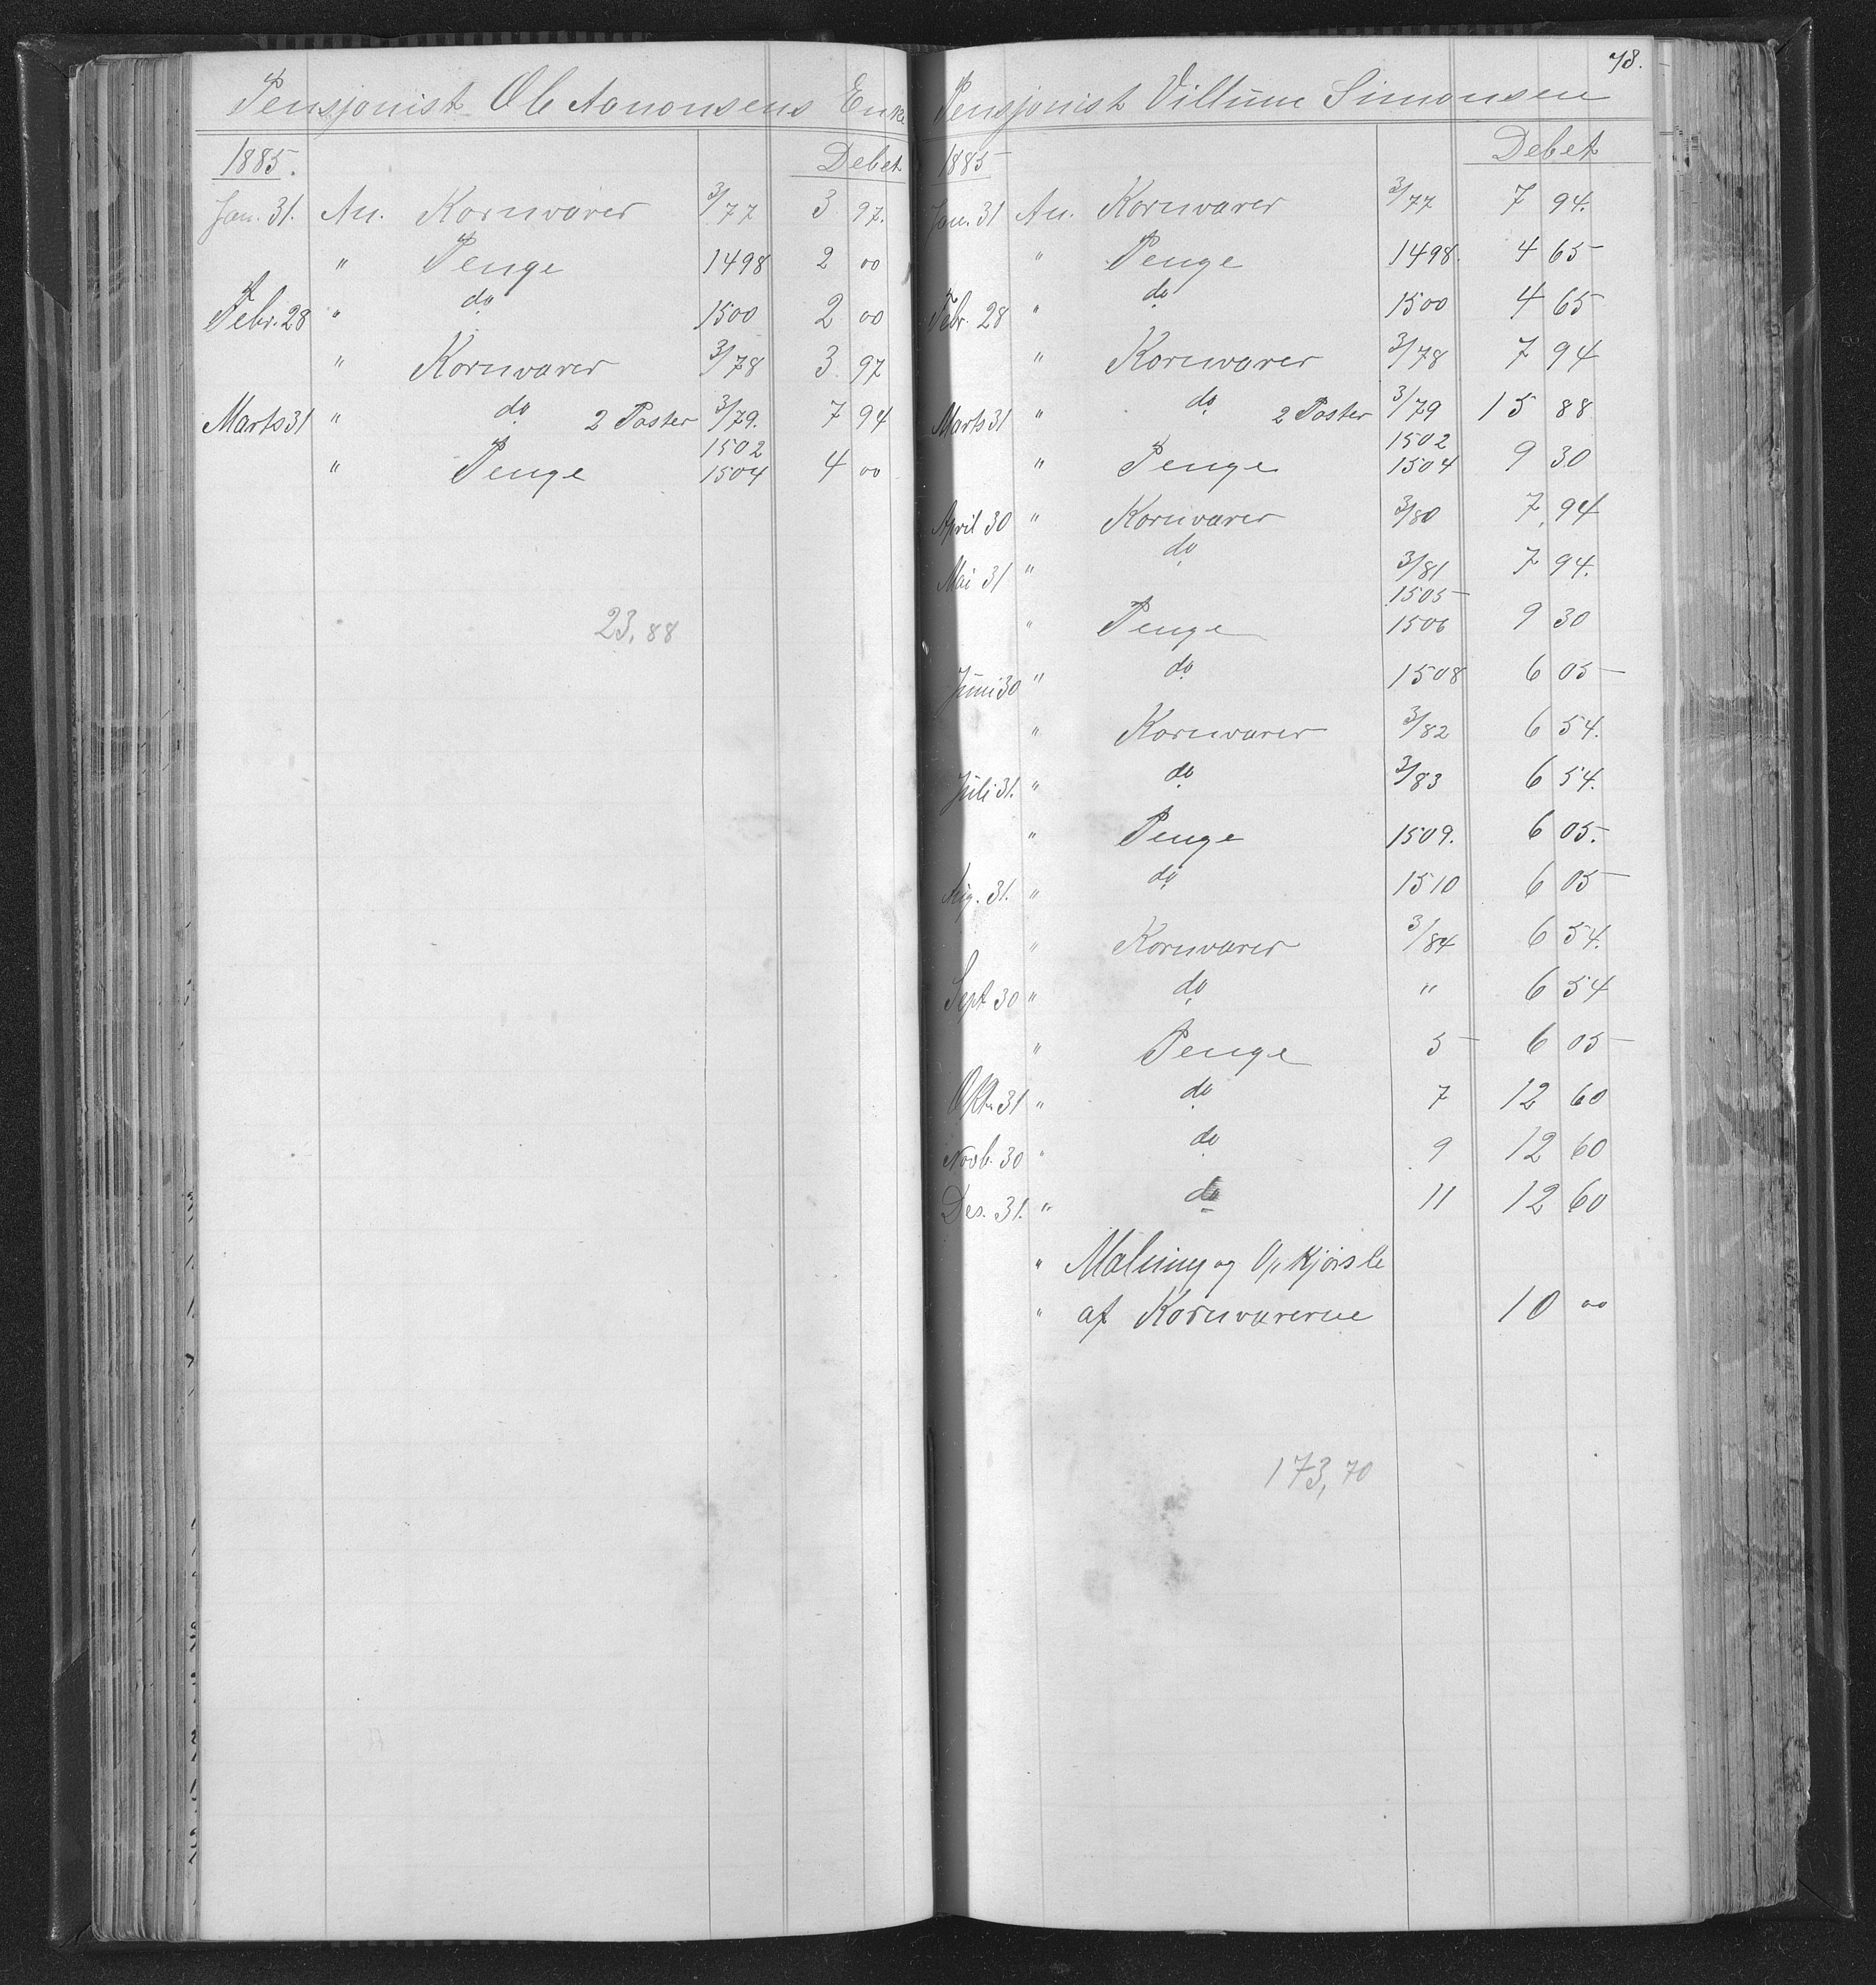 Pensjonist Ole Aanonsens Enke
1885. Debet
Jan. 31. An. Kornvarer 3/77 3 97.
" Penge 1498 2 00
Febr. 28 " do 1500 2 00
" Kornvarer 3/78 3 97
Marts 31 " do 2 Poster 3/79. 7 94
1502
" Penge 1504 4 00
23,88
78.
Pensjonist Villum Simonsen
1885 Debet
Jan. 31 An. Kornvarer 3/77 7 94.
" Penge 1498. 4 65
Febr. 28 " do 1500 4 65
" Kornvarer 3/78 7 94
Marts 31 " do 2 Poster 3/79 15 88
1502
" Penge 1504 9 30
April 30 " Kornvarer 3/80 7 94
Mai 31 " do 3/81 7 94.
1505
" Penge 1506 9 30
Juni 30 " do 1508 6 05
" Kornvarer 3/82 6 54.
Juli 31. " do 3/83 6 54.
" Penge 1509. 6 05.
Aug. 31. " do 1510 6 05
" Kornvarer 3/84 6 54.
Sept 30 " do " 6 54
" Penge 5 6 05
Okt. 31 " do 7 12 60
Novb. 30 " do 9 12 60
Des. 31. " do 11 12 60
" Malning og Opkjørsle
" af Kornvarerne 10 00
173,70